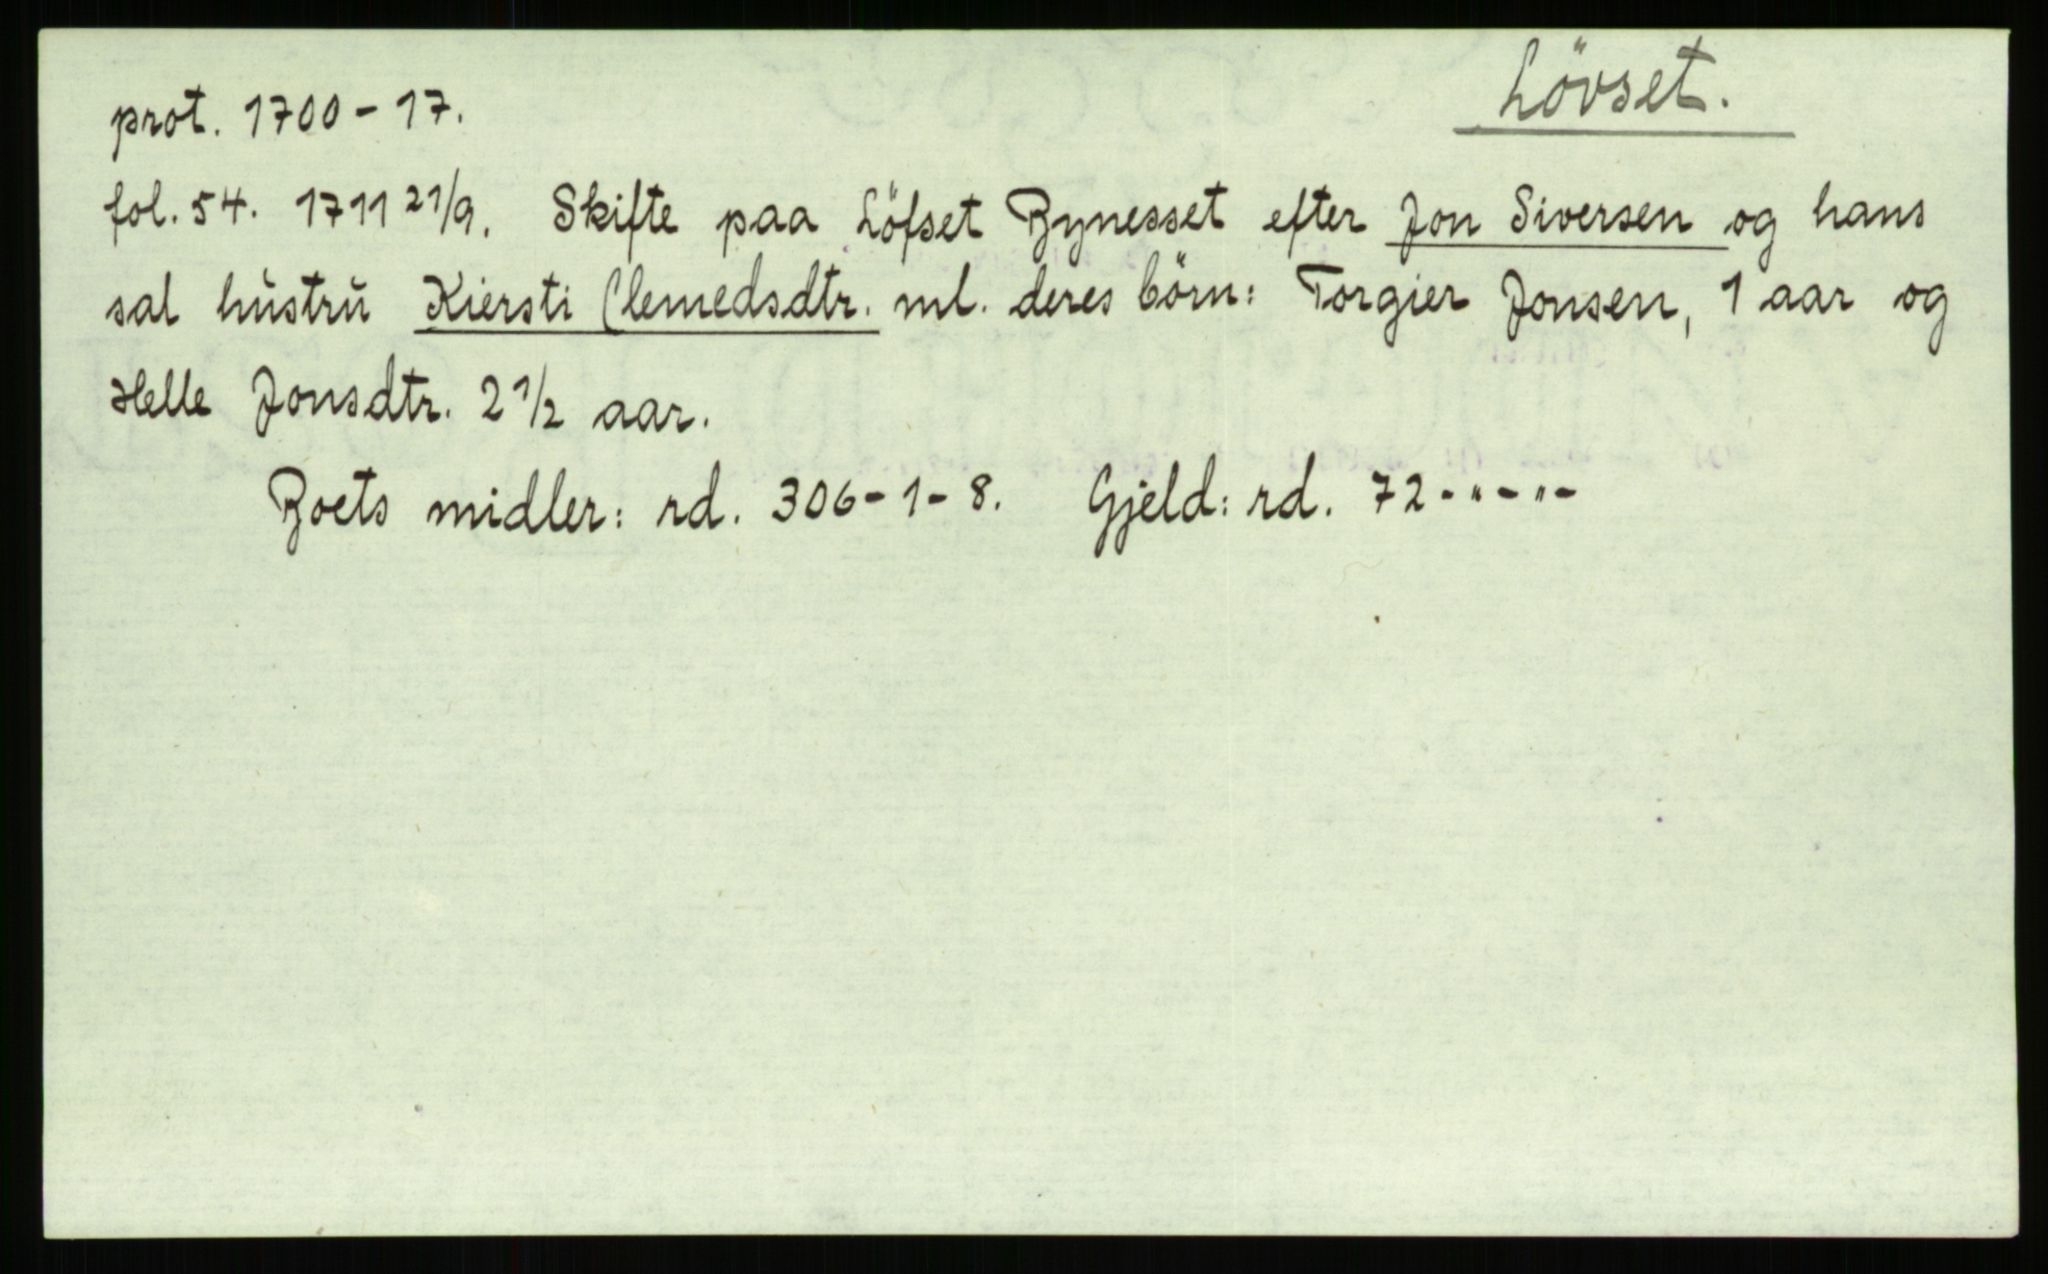 Lövset.
prot. 1700 - 17.
fol. 54. 1711 21/9. Skifte paa Löfset Bynesset efter Jon Siversen og hans
sal hústrú Kiersti Clemedsdtr. ml. deres börn: Torgier Jonsen, 1 aar og
Helle Jonsdtr. 2 1/2 aar.
Boets midler: rd. 306 - 1 - 8. Gjeld: rd. 72 - " - " -